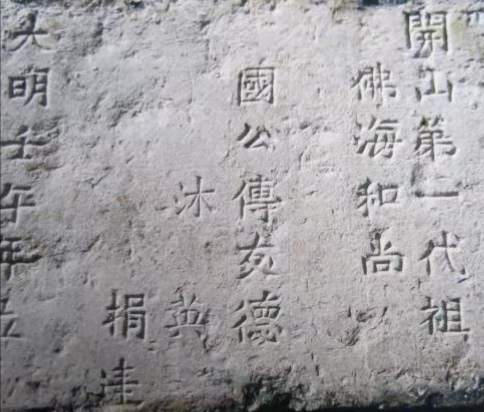 開山第一代祖
佛海和尚
國公傅友德
沐英
捐建
大明壬午年立